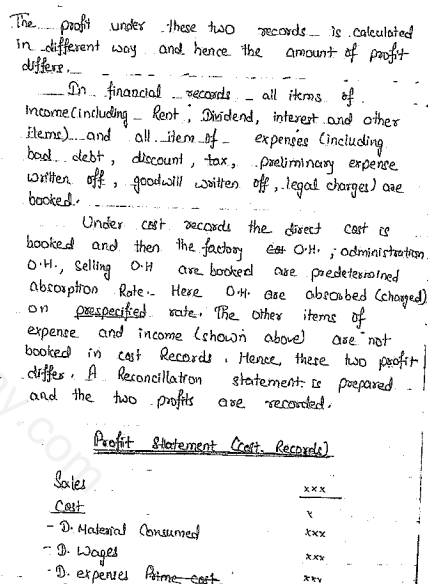 The profit under these two records is calculated
in different way and hence the amount of profit
differe.
In financial records all items of
income (including Rent, Dividend, interest and other
items) and all item of expenses (including
bad debt, discount, tax, preliminary expense
written off, goodwill written off, legal charges) are
booked.
Under cost records the direct cost is
booked and then the factory O.H., administration
O.H., Selling O.H are booked are predetermined
absorption Rate. Here O.H. are absorbed (charged)
on prespecified rate. The other items of
expense and income (shown above) are not
booked in cost Records. Hence, these two profit
differ. A Reconcillation statement is prepared
and the two profits are recorded.
Profit Statement (Cost Records)
Sales xxx
Cost x
- D. Material Consumed xxx
- D. Wages xxx
- D. expenses Prime cost xxx